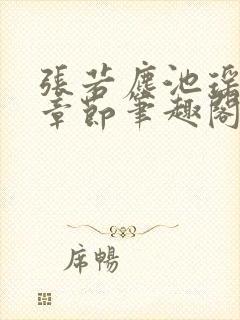 張若塵池瑤
章節筆趣閣
席暢